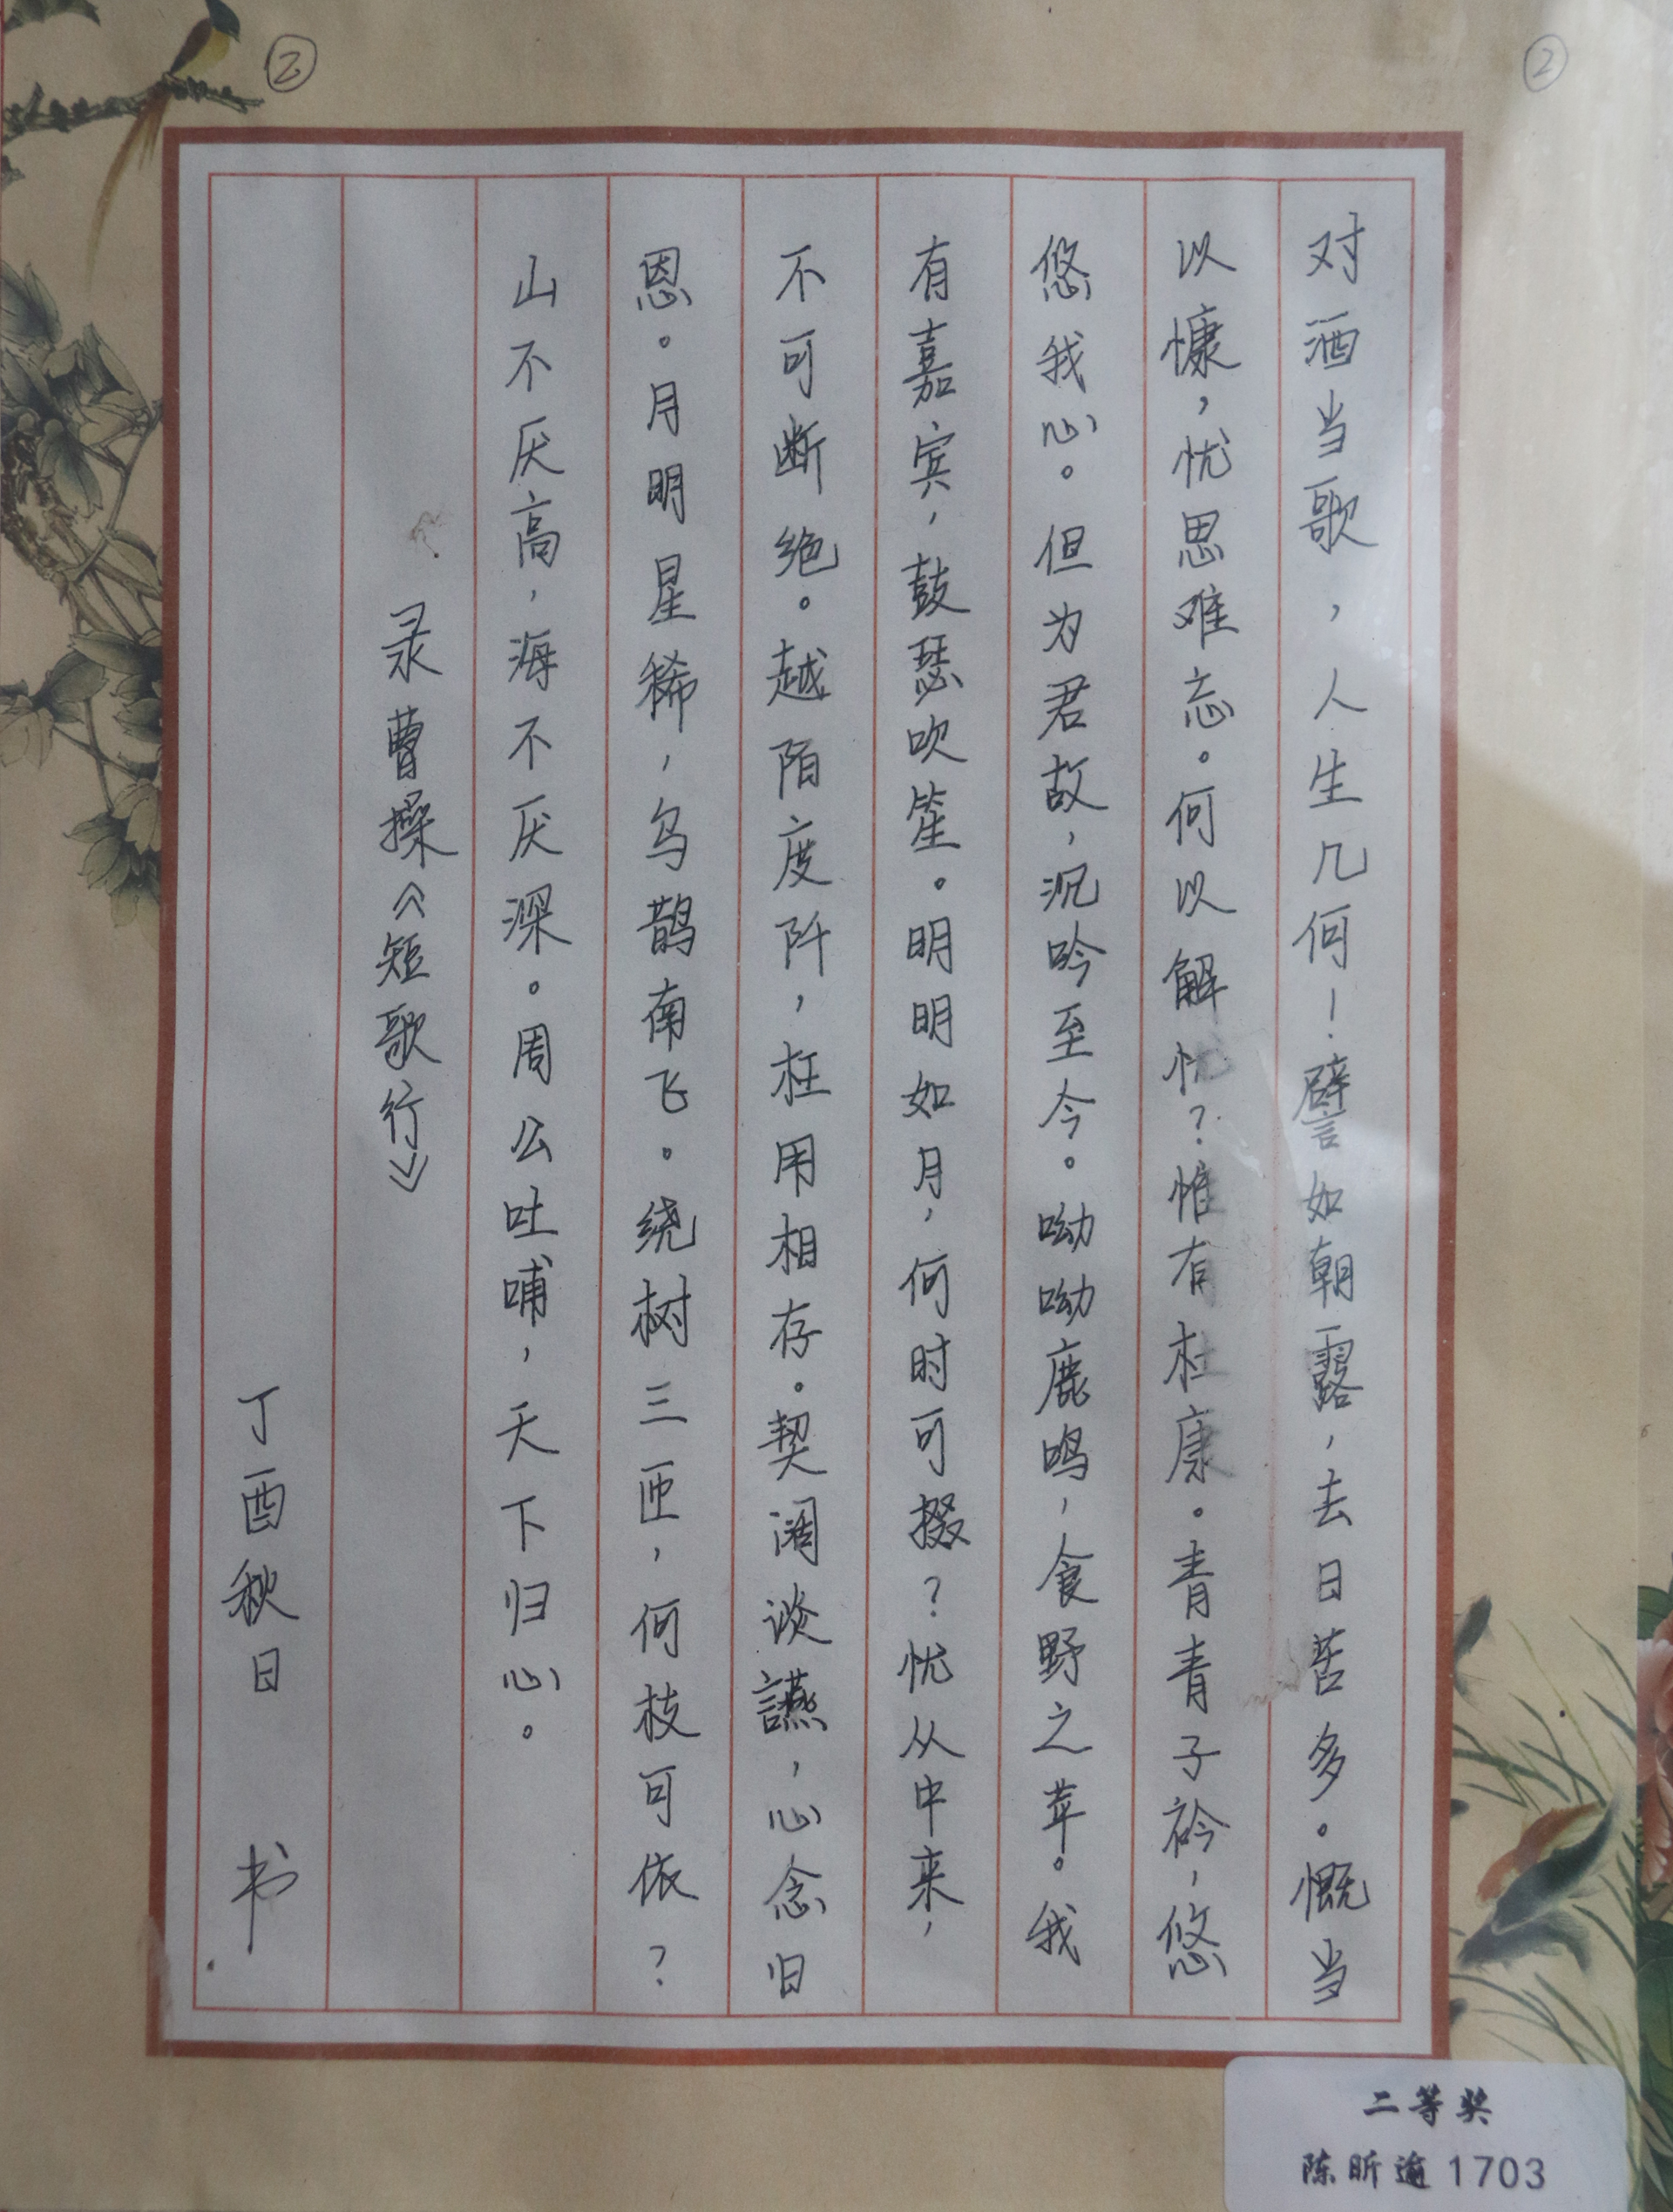 ②
②
对酒当歌，人生几何！譬如朝露，去日苦多。慨当
以慷，忧思难忘。何以解忧？惟有杜康。青青子衿，悠
悠我心。但为君故，沉吟至今。呦呦鹿鸣，食野之苹。我
有嘉宾，鼓瑟吹笙。明明如月，何时可掇？忧从中来，
不可断绝。越陌度阡，枉用相存。契阔谈讌，心念旧
恩。月明星稀，乌鹊南飞。绕树三匝，何枝可依？
山不厌高，海不厌深。周公吐哺，天下归心。
录曹操《短歌行》
丁酉秋日 书
二等奖
陈昕逾1703